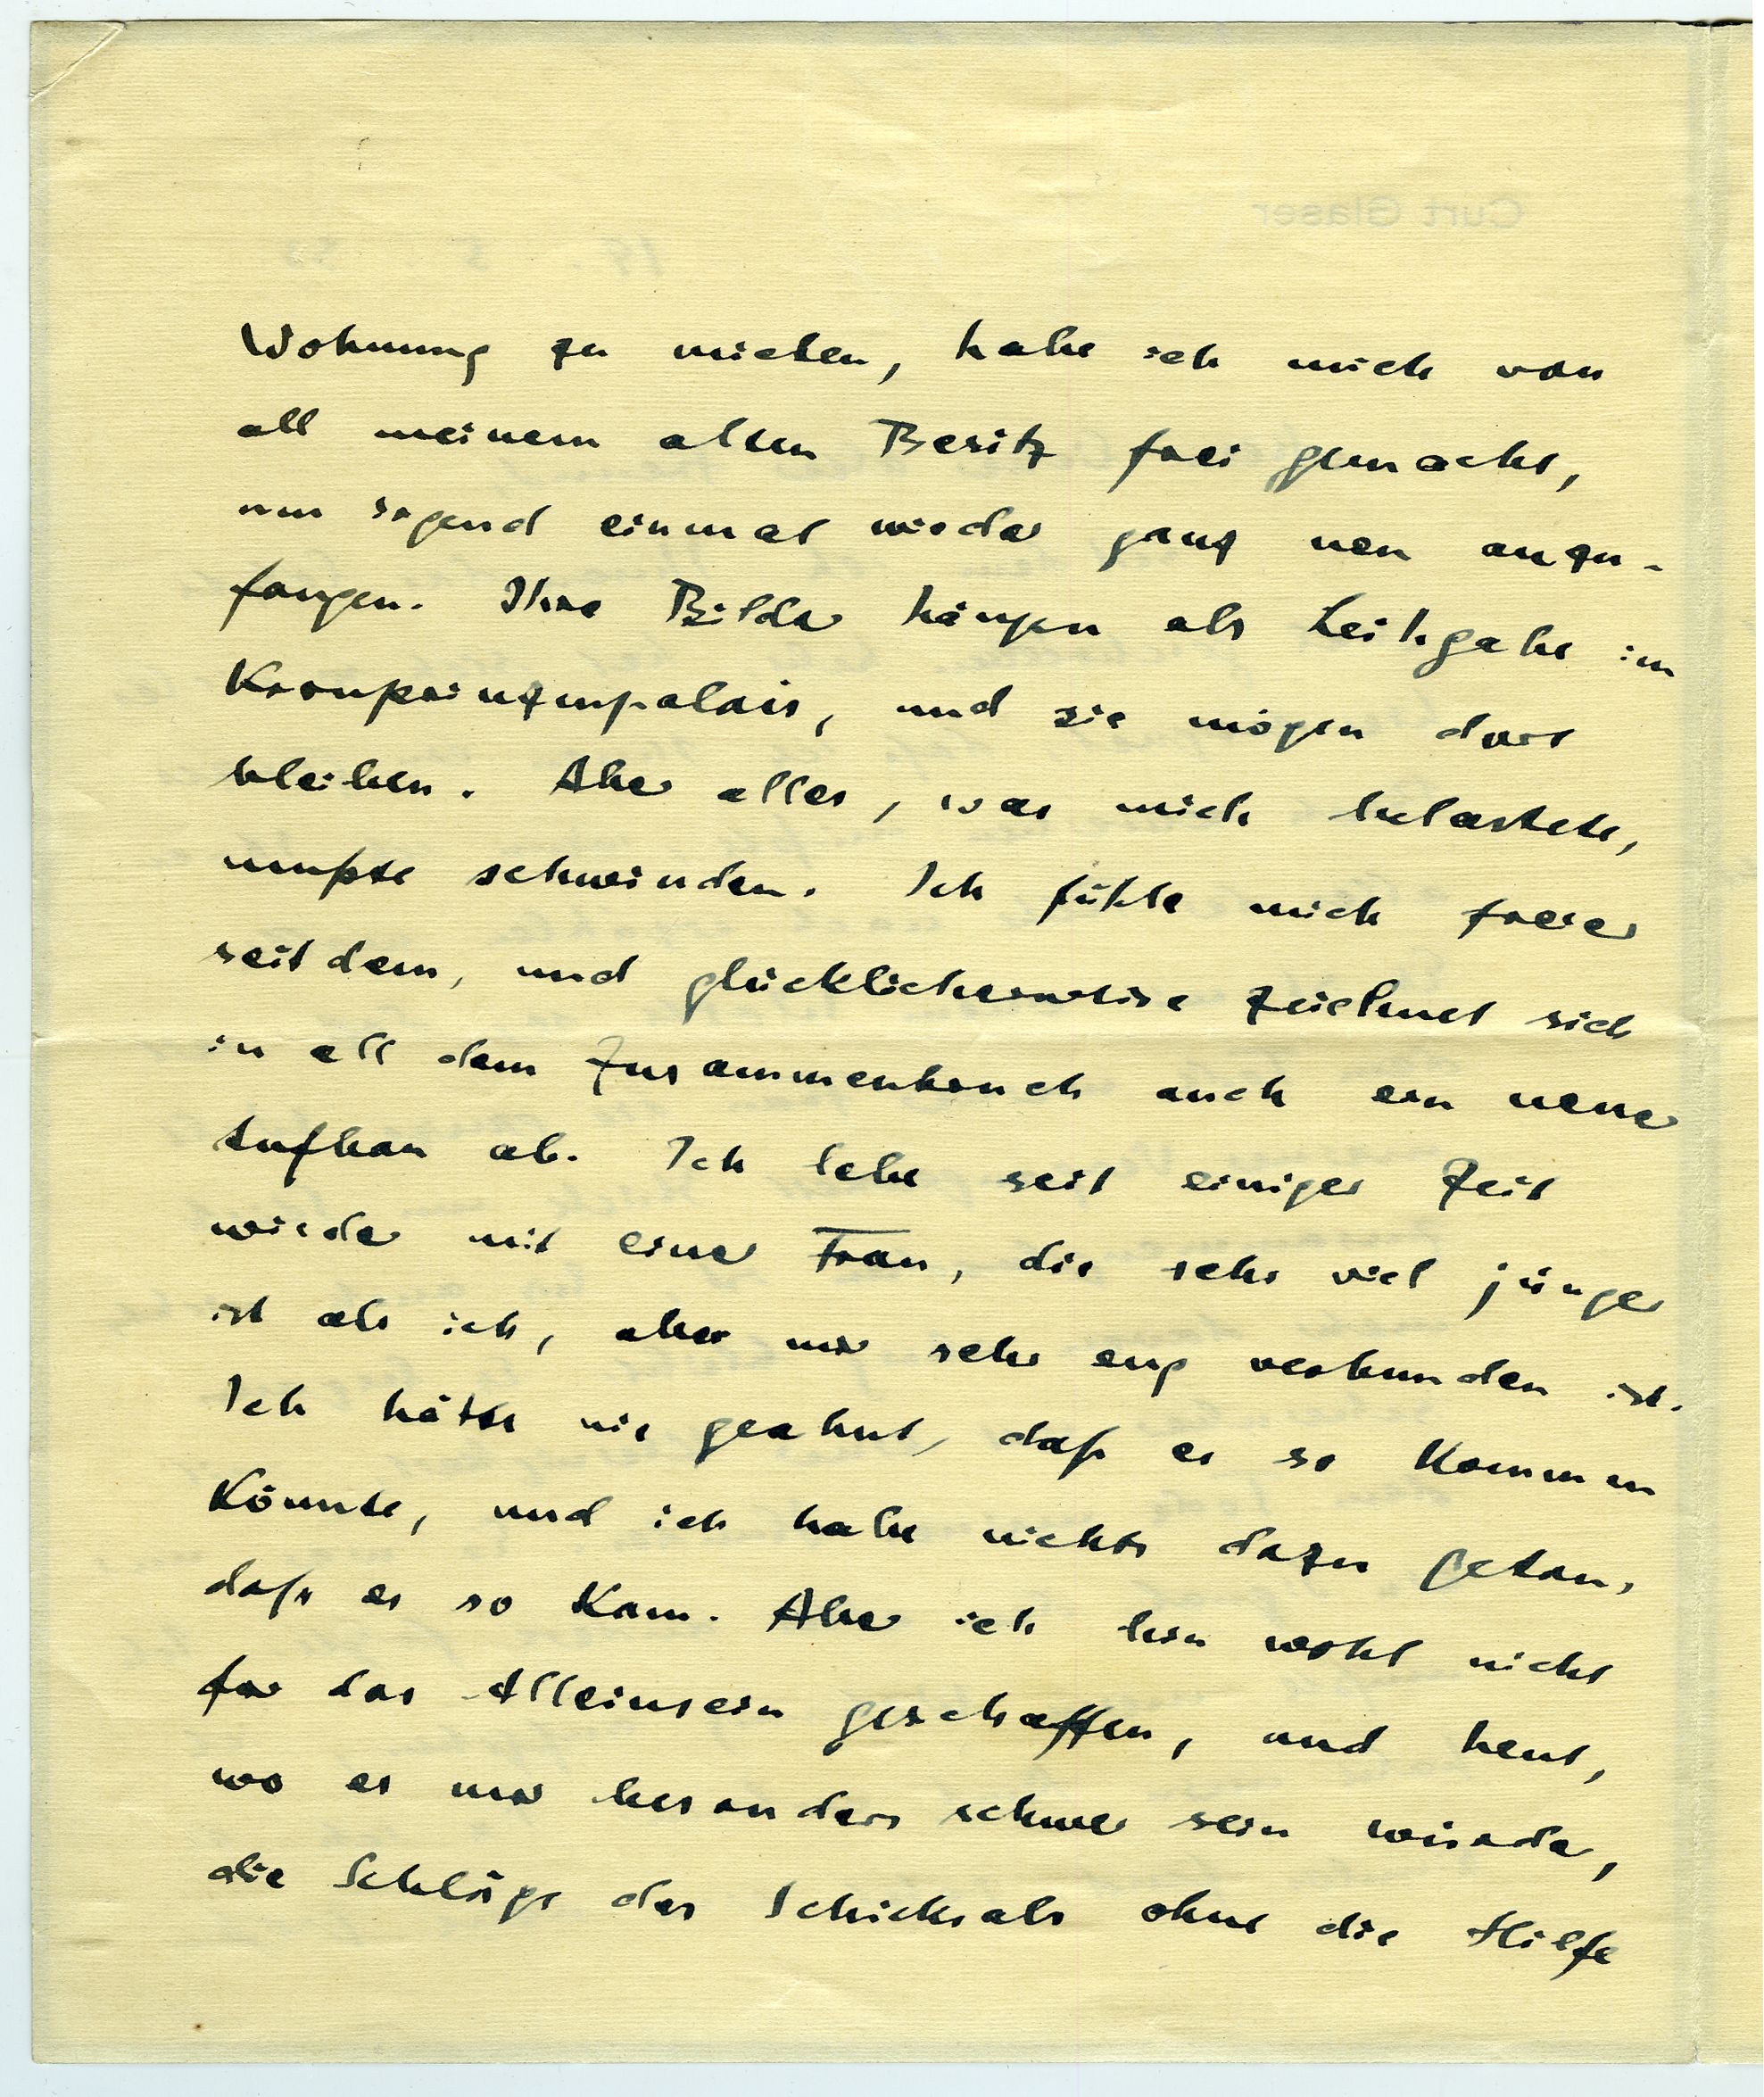 Wohnung zu mieten, habe ich mich von
all meinem alten Besitz frei gemacht,
um irgend einmal wieder ganz neu anzu-
fangen. Ihre Bilder hängen als Leihgabe im
Kronprinzenpalais, und sie mögen dort
bleiben. Aber alles, was mich belastete,
mußte schwinden. Ich fühle mich freier
seitdem, und glücklicherweise zeichnet sich
in all dem Zusammenbruch auch ein neuer
Aufbau ab. Ich lebe seit einiger Zeit
wieder mit einer Frau, die sehr viel jünger
ist als ich, aber mir sehr eng verbunden ist.
Ich hätte nie geahnt, daß es so kommen
könnte, und ich habe nichts dazu getan,
daß es so kam. Aber ich bin wohl nicht
für das Alleinsein geschaffen, und heut,
wo es mir besonders schwer sein würde,
die Schläge des Schicksals ohne die Hilfe